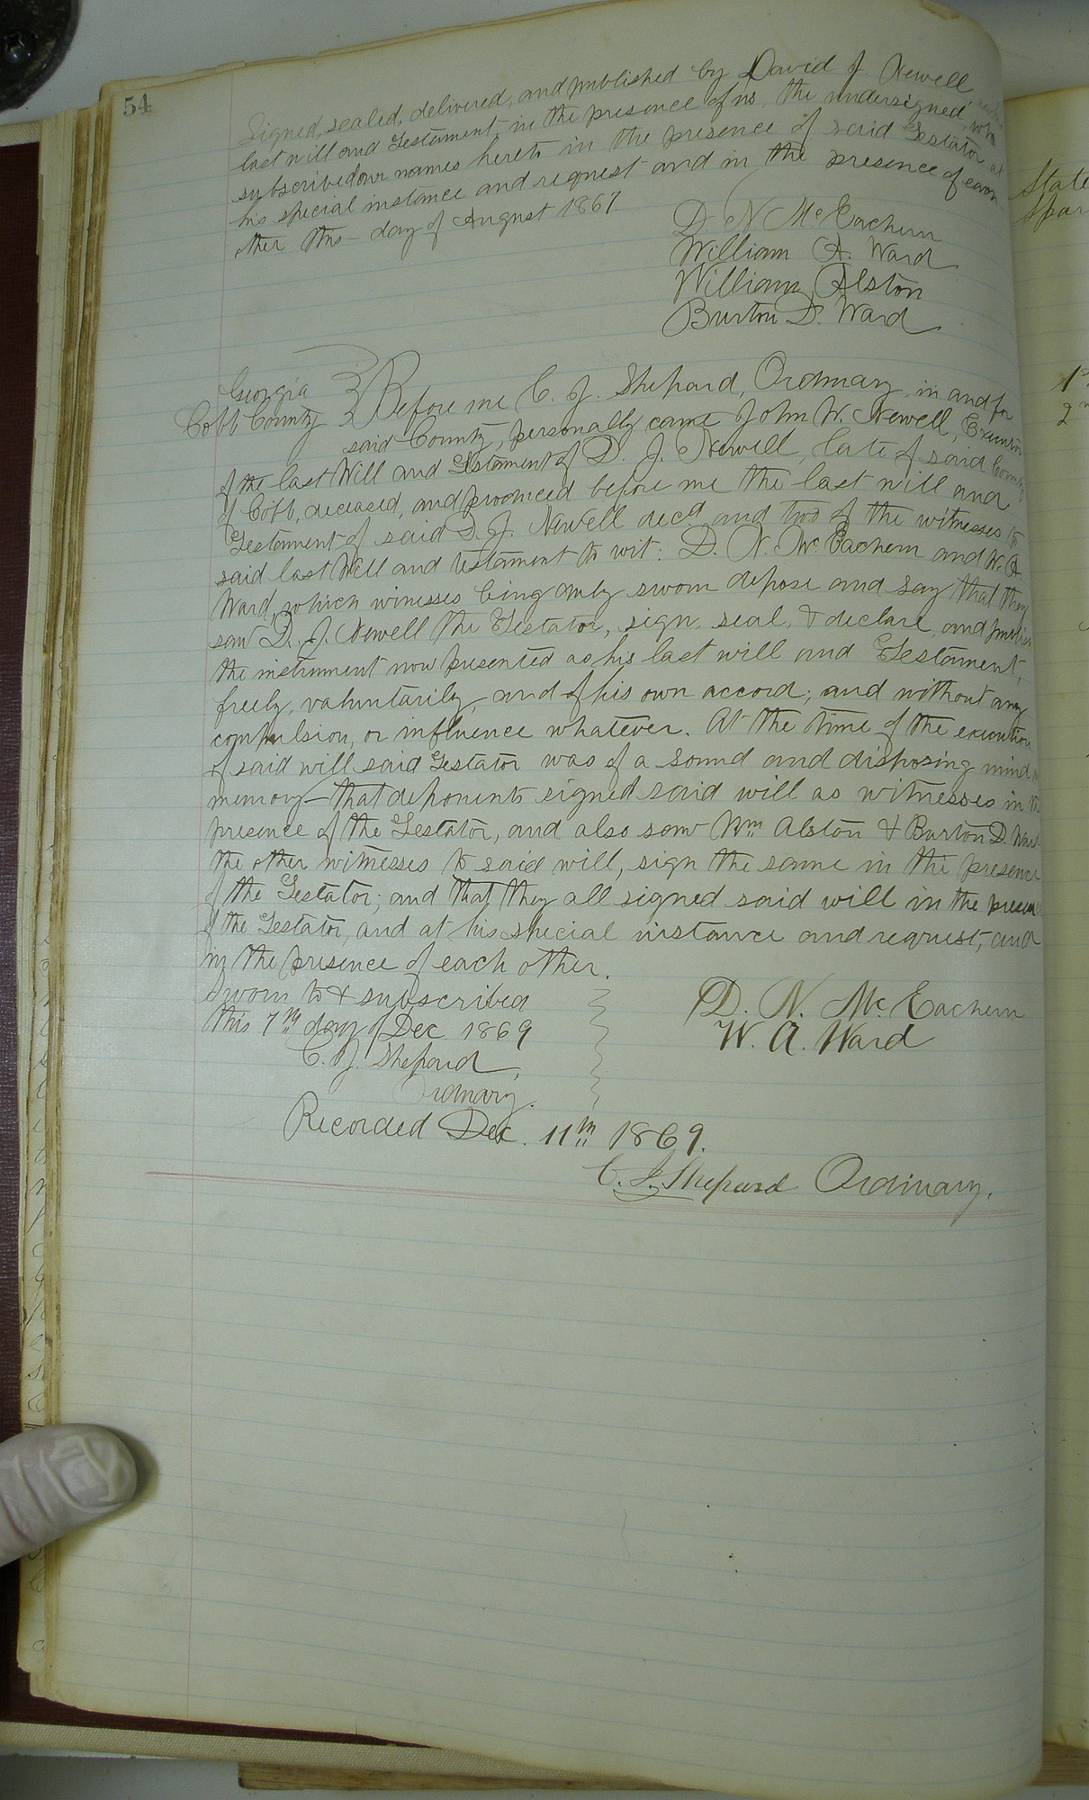 54
Signed, sealed, delivered, and published by David J. Newell
last will and Testament, in the presence of us, the undersigned, who
subscribed our names hereto in the presence of said Testator at
his special instance and request and in the presence of each
other this — day of August 1867.
D. N. McEachern
William A. Ward
William Alston
Burton D. Ward
Georgia
Cobb County } Before me C. J. Shepard, Ordinary, in and for
said County, personally came John W. Newell, Executor
of the last Will and Testament of D. J. Newell, late of said County
of Cobb, deceased, and produced before me the last will and
Testament of said D. J. Newell decd and two of the witnesses to
said last Will and testament to wit: D. N. McEachern and W. A.
Ward, which winesses being duly sworn depose and say that they
saw D. J. Newell the Testator, sign, seal, & declare, and publish
the instrument now presented as his last will and Testament,
freely, voluntarily, and of his own accord; and without any
compulsion, or influence whatever. At the time of the execution
of said will said Testator was of a sound and disposing mind
memory — that deponents signed said will as witnesses in the
presence of the Testator, and also saw Wm Alston & Burton D. Ward
the other witnesses to said will, sign the same in the presence
of the Testator; and that they all signed said will in the presence
of the Testator, and at his special instance and request, and
in the presence of each other.
Sworn to & subscribed
this 7th day of Dec 1869
C. J. Shepard,
Ordinary.
D. N. McEachern
W. A. Ward
Recorded Dec. 11th 1869.
C. J. Shepard Ordinary.
State
Spar